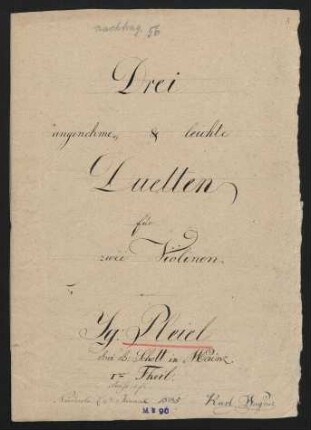 nachtrag. 56
Drei
angenehme & leichte
Duetten
für
zwie Violinen.
Ig: Pleiel
bei B. Schott in Mainz
Theil.
Karl Wagner
M S 90